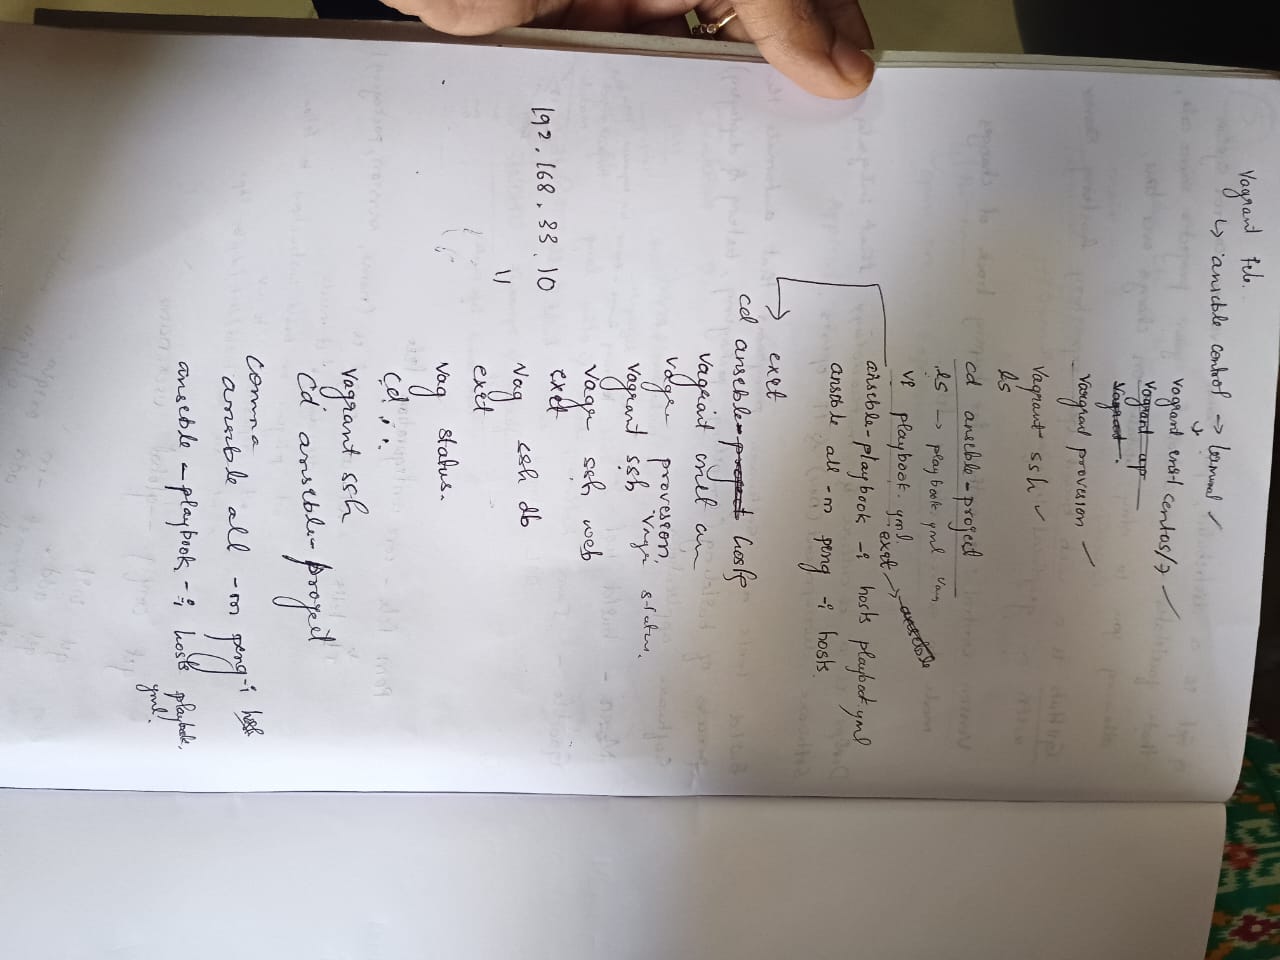 Vagrant file.
↳ ansible control → terminal ✓
vagrant init centos/7 ✓
vagrant up
vagrant.
vagrant provesion ✓
vagrant ssh ✓
ls
cd ansible-project
ls → playbook.yml vag
vi playbook.yml. exit →
ansible-playbook -i hosts playbook.yml
ansible all -m ping -i hosts.
→ exit
cd ansible-project hosts
vagrant init
vagr provesion,
vagrant ssh vagr status.
vagr ssh web
exit
192.168.33.10 vag ssh db
" exit
vag status.
cd ..
vagrant ssh
cd ansible-project
comma
ansible all -m ping -i host
ansible-playbook -i hosts playbook.
yml.